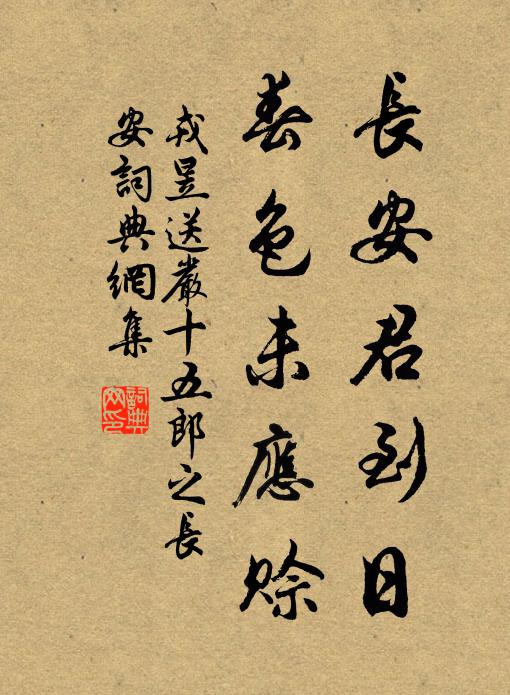 長安君到日
春色未應賒
戎昱送嚴十五郎之長
安詞典網集
詞典
網印